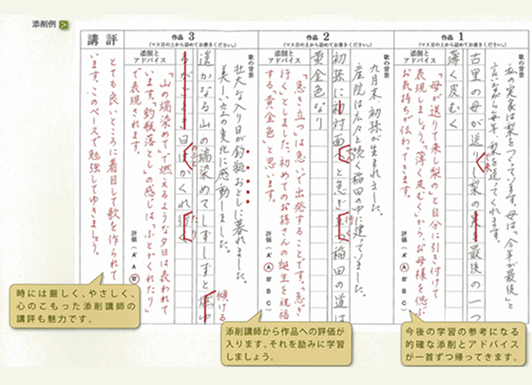 添削例
作品 1
(マス目の上から詰めてお書きください。)
歌の背景
私の実家は梨をつくっています。母は、今年が最後と
言いながら毎年、梨を送ってくれます。
古里の母が送りし梨の実最後の一つ
薄く皮むく
添削と
アドバイス
「母が送りて来し梨の」と自分に引き付けて
表現しましょう。「薄く皮むく」から、お母様を偲ぶ
お気持が伝わってきます。
評価 (A' A B' B C)
作品 2
(マス目の上から詰めてお書きください。)
歌の背景
九月末、初孫が生まれました。
産院は広々と続く稲田の中に建っていました。
初孫に初対面と急ぎ 稲田の道は
黄金色なり
添削と
アドバイス
「急ぎ立つ」は急いで出発することです。「急ぎ
行く」としました。初めてのお孫さんの誕生を祝福
する「黄金色」と思います。
評価 (A' A B' B C)
作品 3
(マス目の上から詰めてお書きください。)
歌の背景
壮大な入り日が釣瓶おとしに暮れました。
美しい空の変化に感動しました。
遥かなる山の端染めてしずしずと
日はかくれ
傾ける
添削と
アドバイス
「山の端染めて」で燃えるような夕日は表われて
います。釣瓶落としの感じは、ふとかくれたり
で表現されます。
評価 (A' A B' B C)
講評
とても良いところに着目して歌を作られて
います。このペースで勉強してゆきましょう。
時には厳しく、やさしく、
心のこもった添削講師の
講評も魅力です。
添削講師から作品への評価が
入ります。それを励みに学習
しましょう。
今後の学習の参考になる
的確な添削とアドバイス
が一首ずつ帰ってきます。